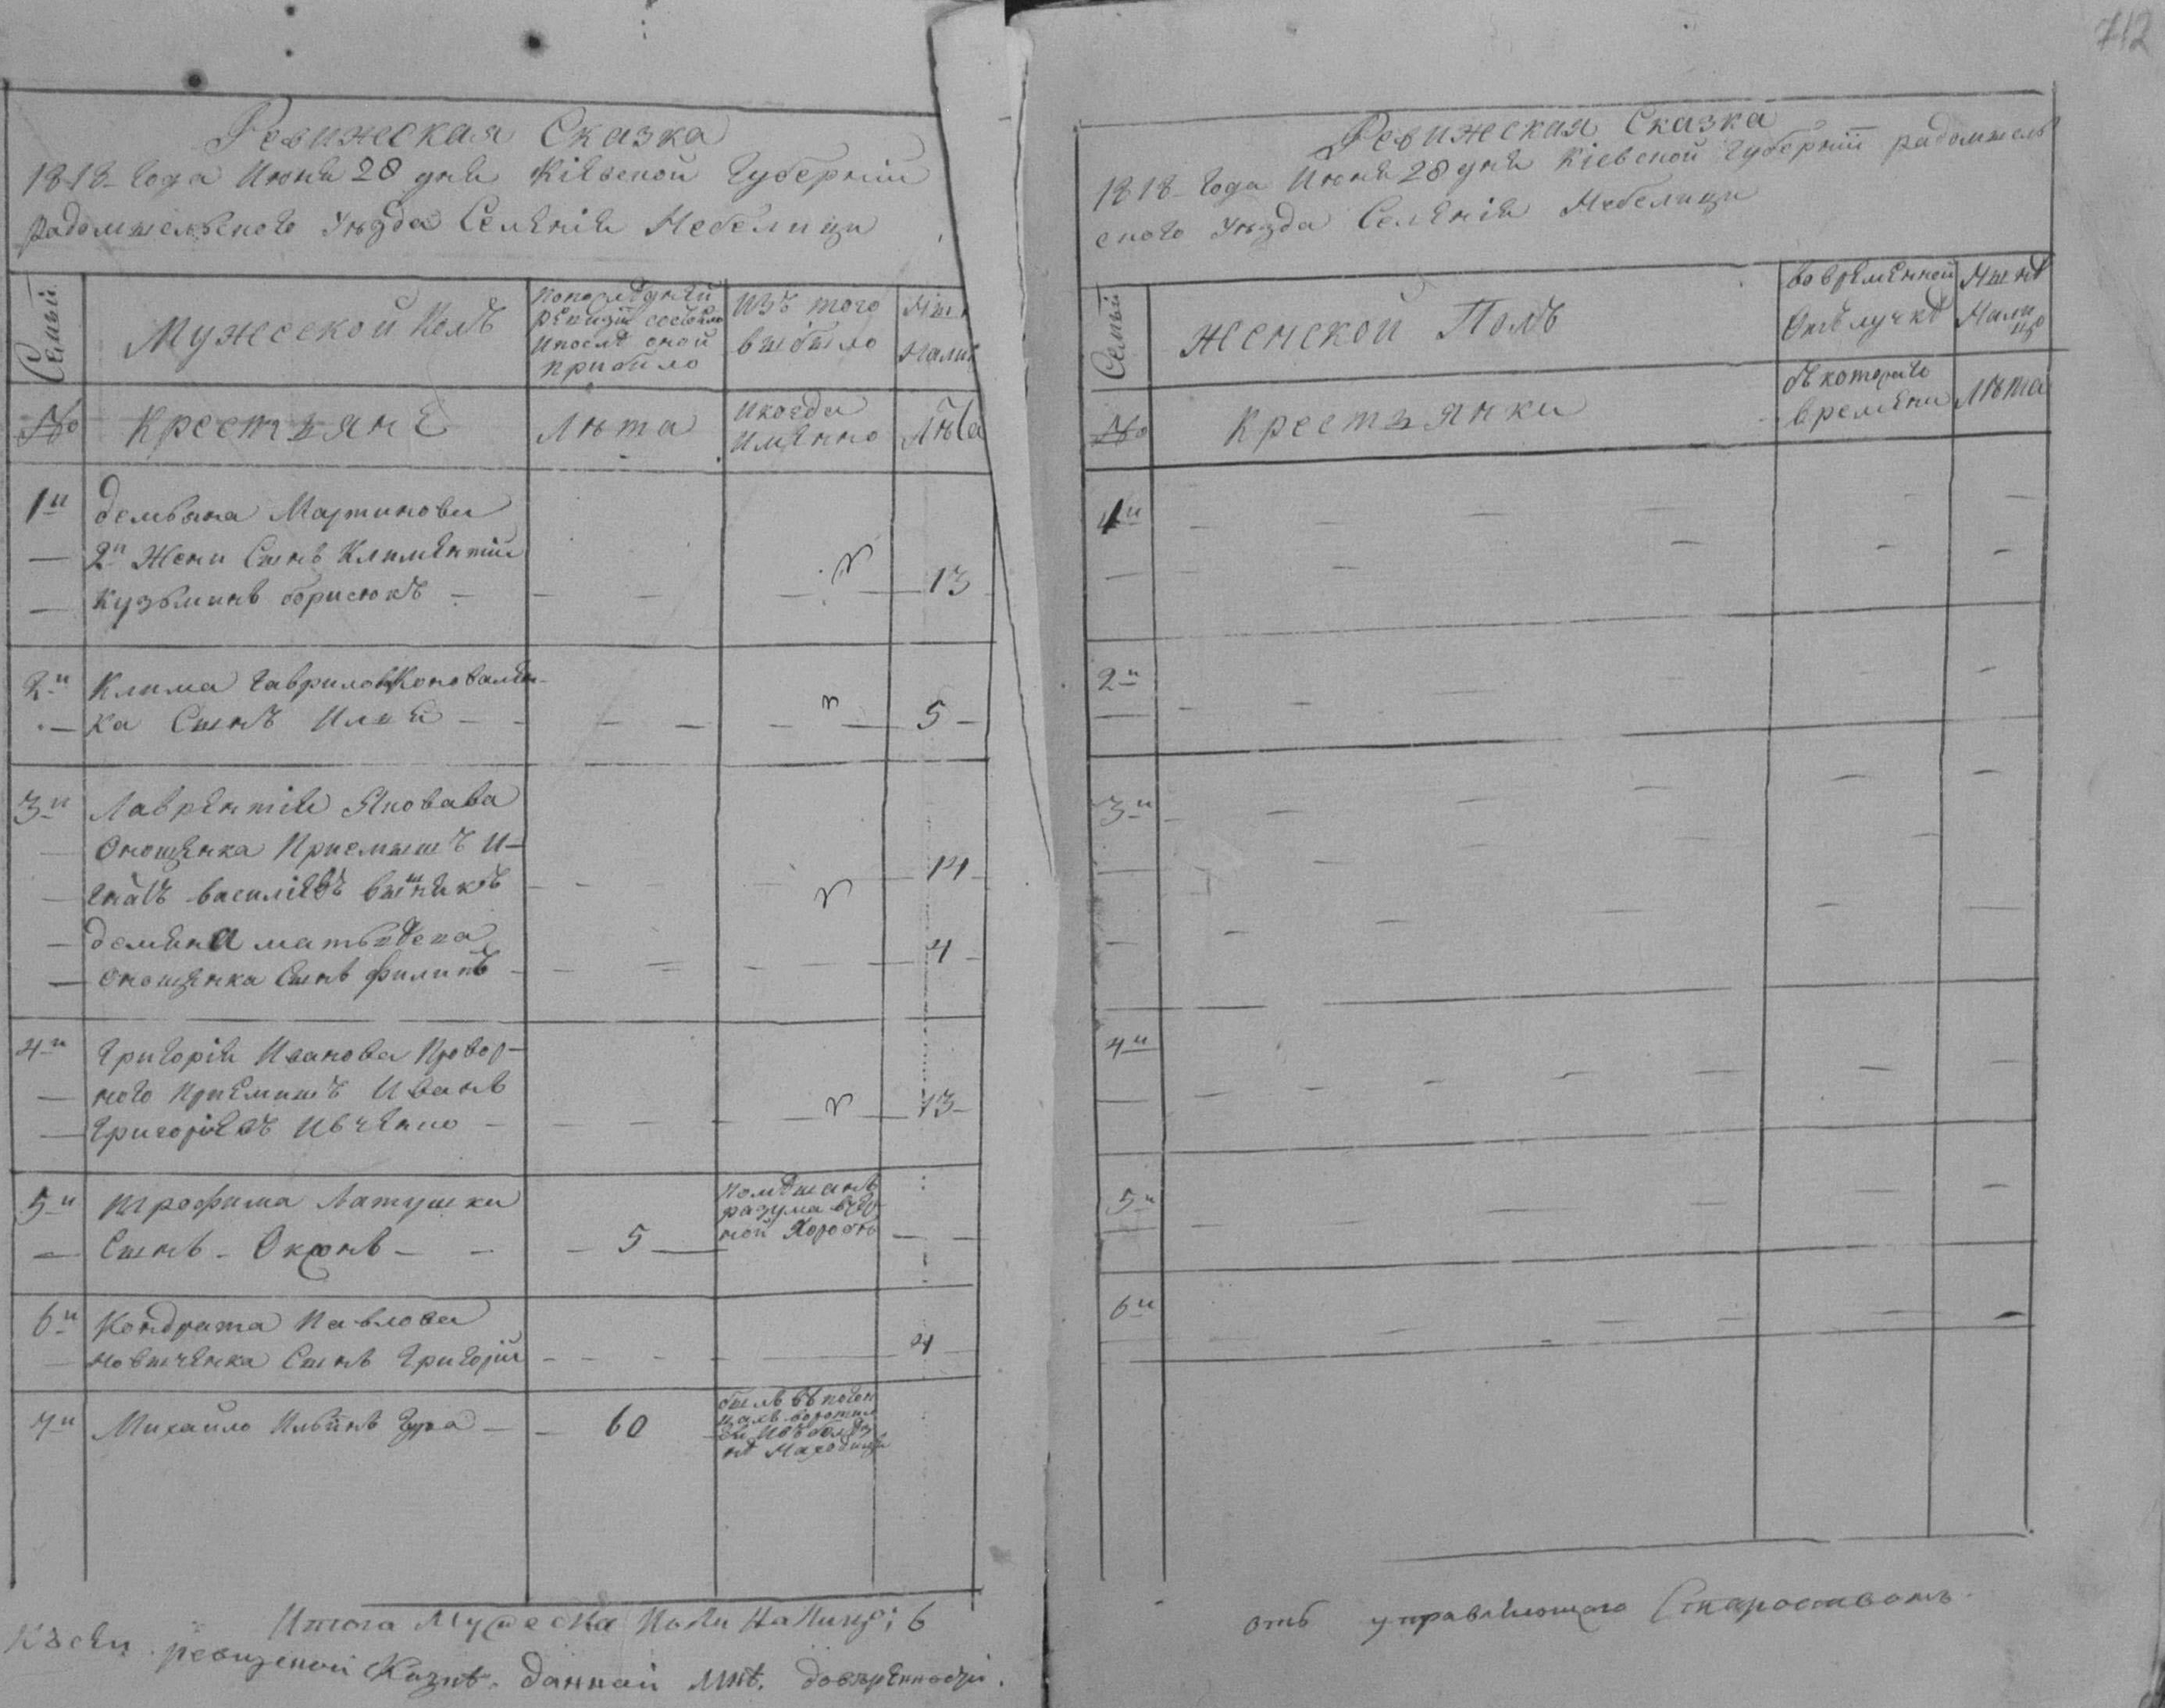 712
Ревижеская Сказка
1818 Года Июня 28 дня Кіевской Губерніи
радомышельского Уѣзда Селенія Небелици
Семьи
Мужеской Полъ
По последней
ревизіи состояло
и послѣ оной
прибило
Изъ того
выбыло
Ныне
Налиц
№
Крестьяне
Лѣта
И когда
имянно
Лѣта
1й
демьяна Мартинова
2й Жени Сынъ Климентій
Кузьминъ борисюкъ
13
2й
Клима Гаврилова Коновален-
ка Сынъ Илья
5
3й
Лаврентія Яковава
Онощенка Приемышъ И-
гнатъ василіевъ
14
демяна матвѣева
Онощенка Сынъ Филипъ
4
4й
Григорія Иванова Провор-
ного Приемишъ Иванъ
Григоріевъ Ивченко
13
5й
Трофима Латушки
Сынъ
5
разума
6й
Кондрата Павлова
Новиченка Сынъ Григорій
4
7й
Михайло Ильинъ Гура
60
былъ въ
Итога Мужеска Пола На Лицо; 6
ревизской Казкѣ. данной мнѣ. довѣренности.
Ревижеская Сказка
1818 Года Июня 28 дня Кіевской Губерніи радомышель
ского Уѣзда Селенія Небелици
Семьи
Женской Полъ
во временной
Отлучкѣ
Нынѣ
Нали
цо
№
Крестьянки
съ которого
времени
Лѣта
1й
2й
3й
4й
5й
6й
отъ управляющаго Староствомъ